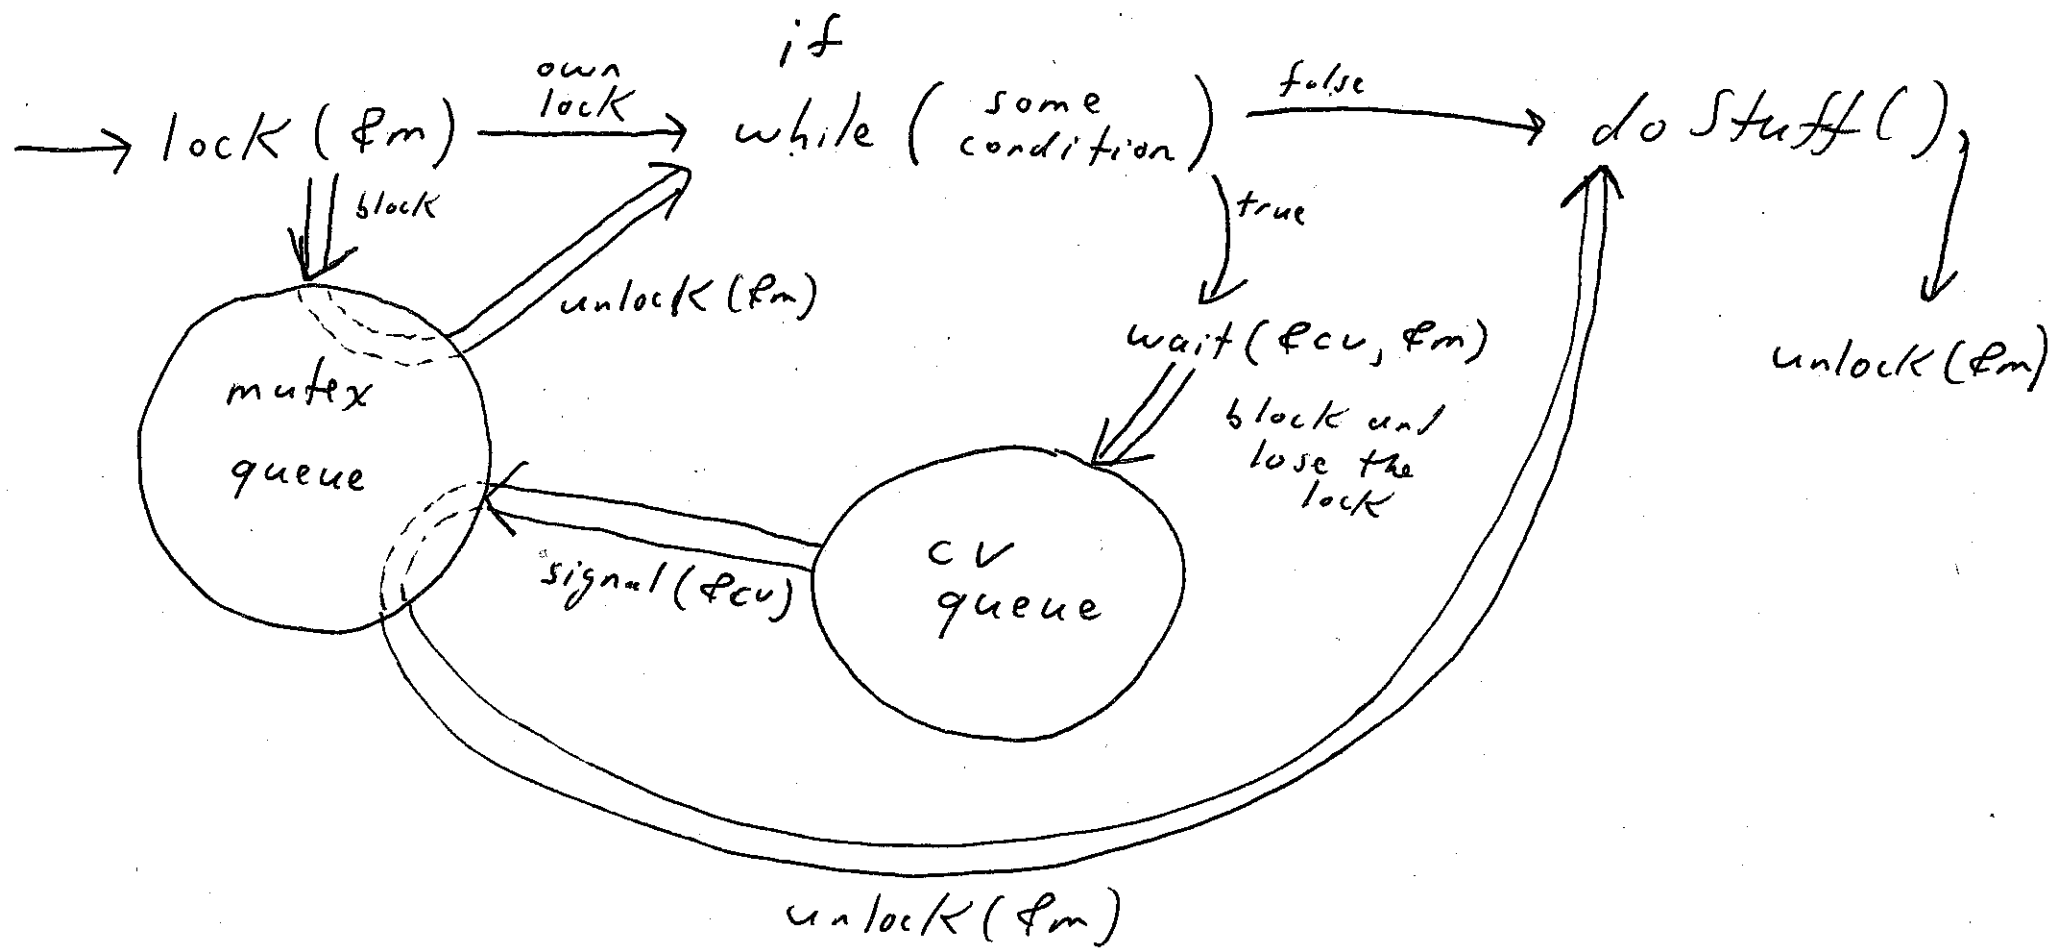 if
own
lock
lock(&m)
while (some
condition)
false
doStuff()
block
true
unlock(&m)
wait(&cv, &m)
unlock(&m)
mutex
queue
block and
lose the
lock
signal(&cv)
cv
queue
unlock(&m)